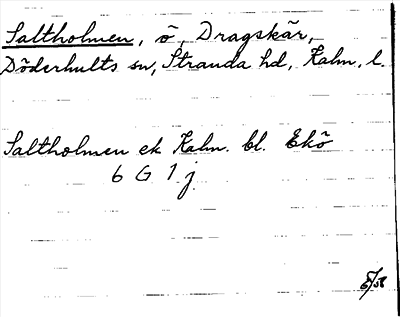 Saltholmen, ö, Dragskär,
Döderhults sn, Stranda hd, Kalm. l.
Saltholmen ek Kalm. bl. Ekö
6 G 1 j